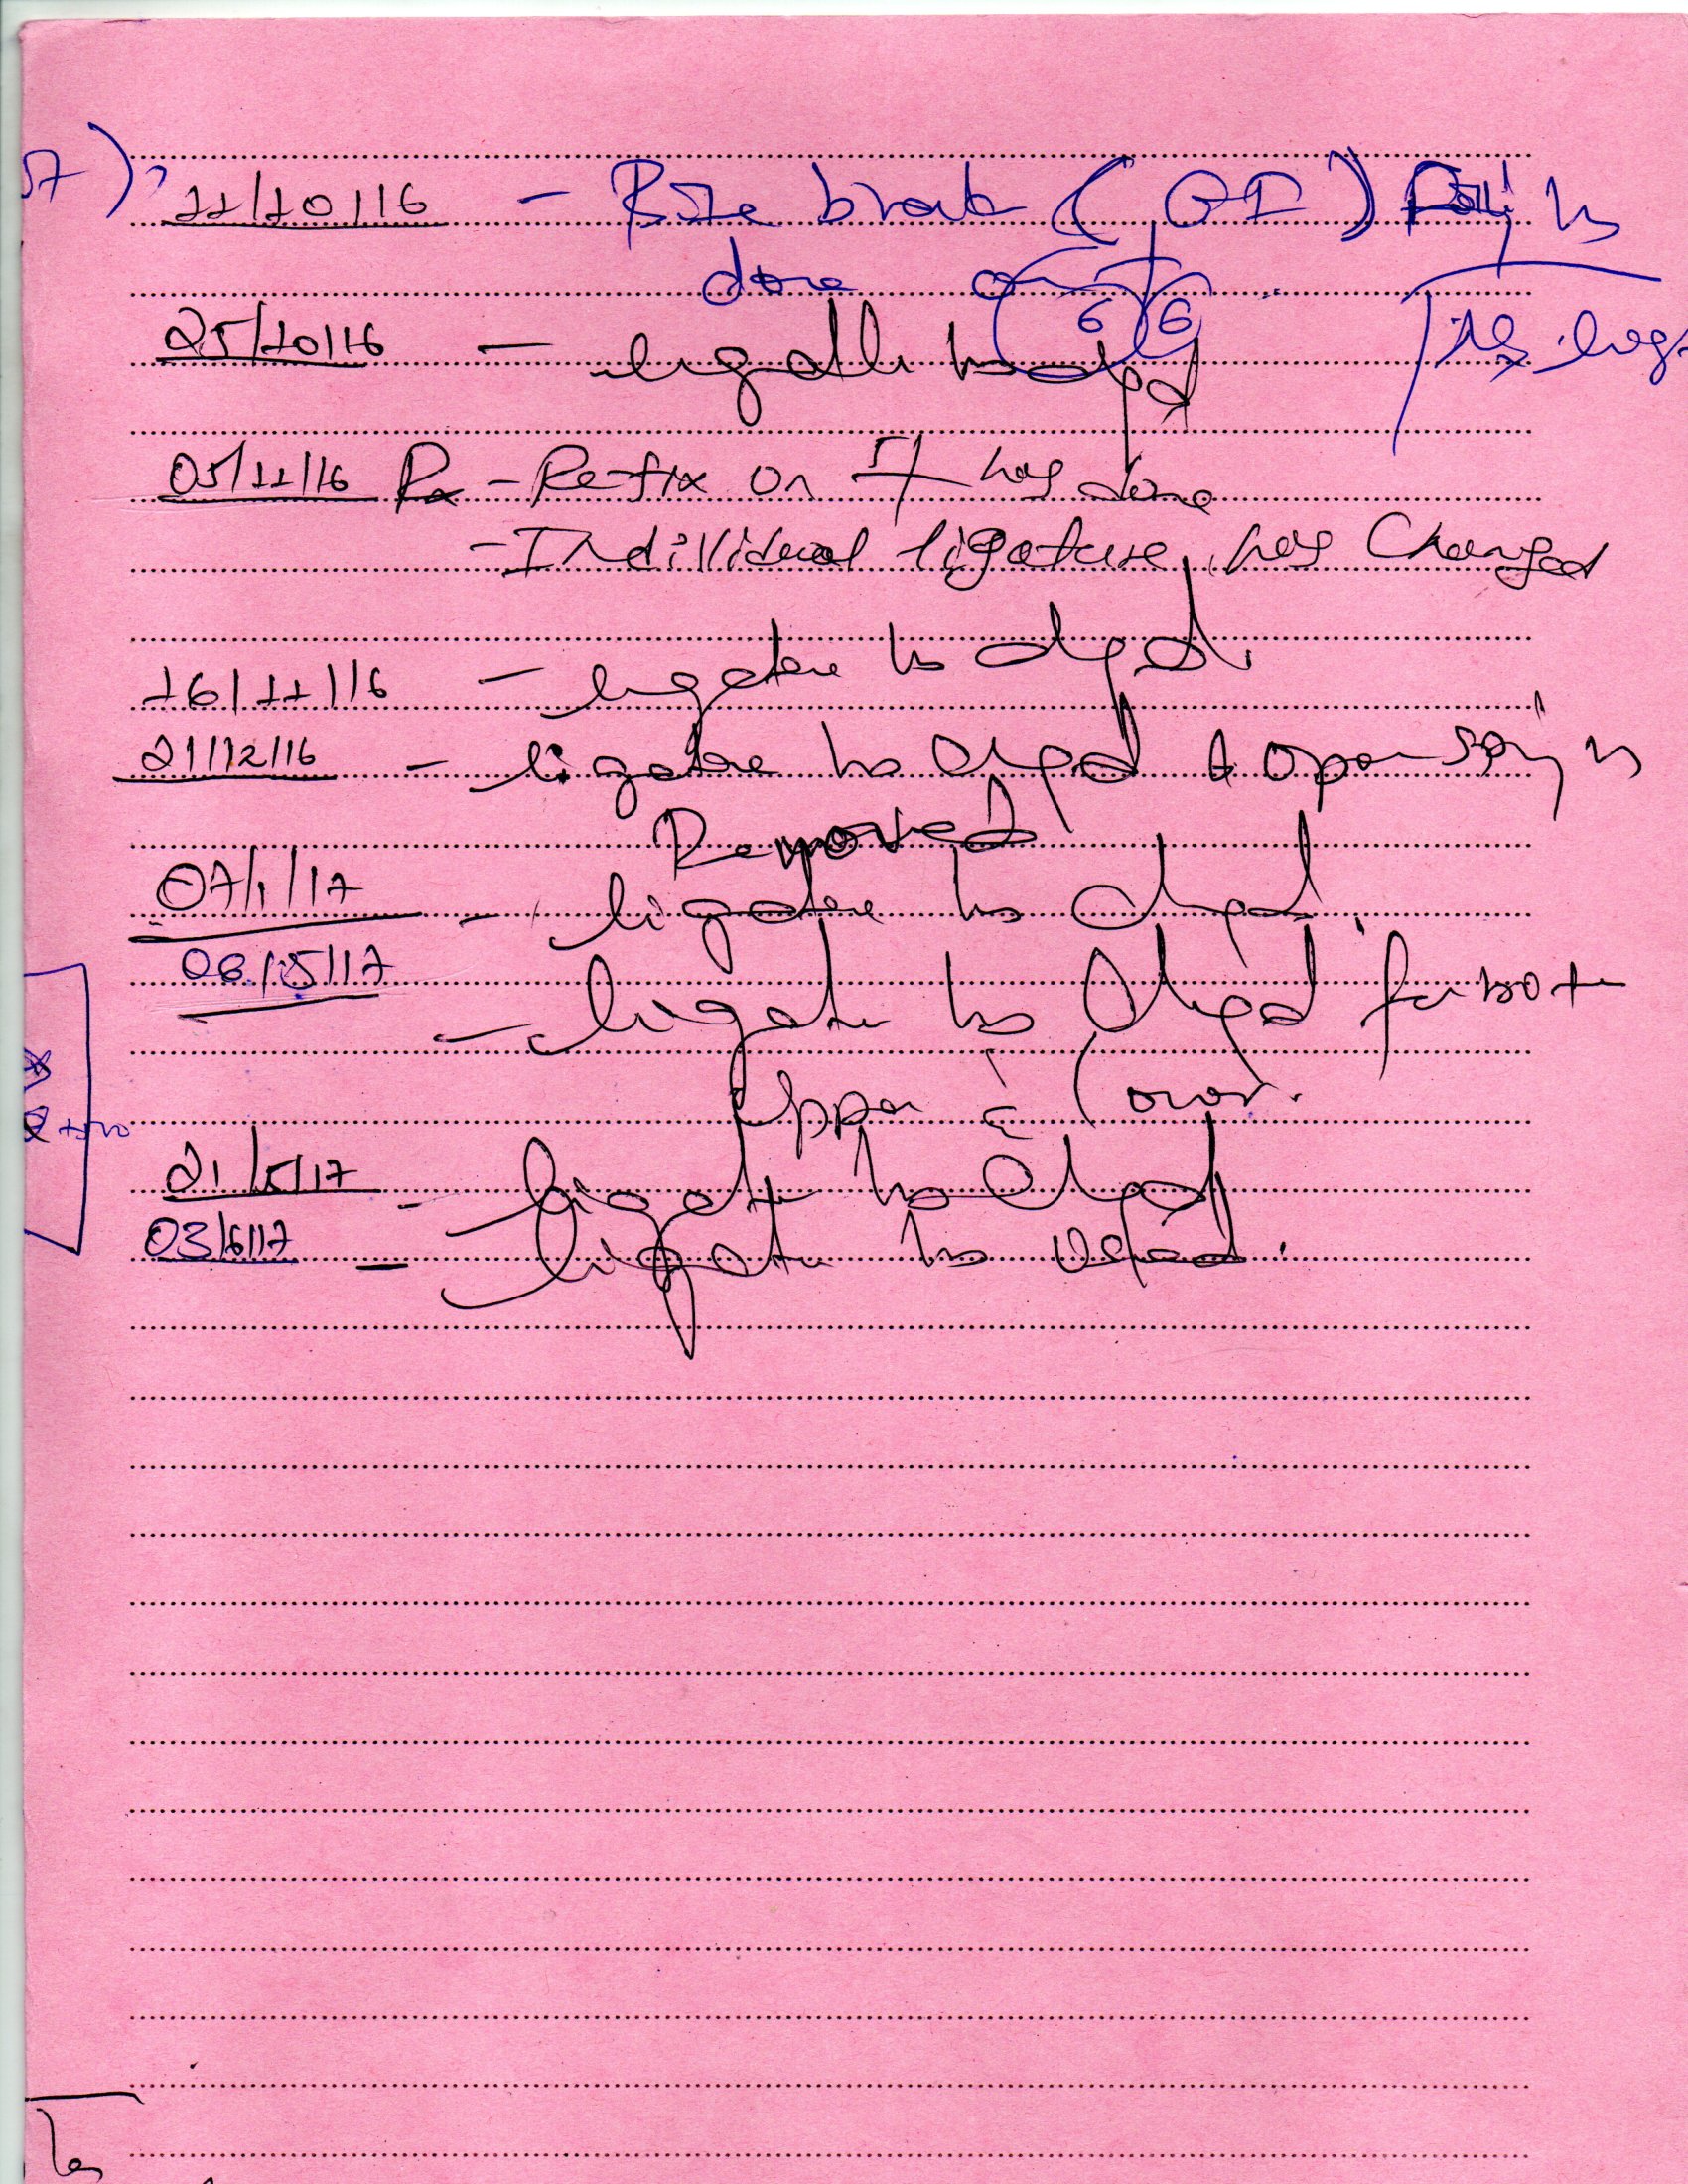 11/10/16 - Bite break (GI) Filling is
done on 6 6
25/10/16 - ligature is chged
05/11/16 Rx - Re-fix on 5 has done
- Individual ligature has Changed
16/11/16 - ligature is chged.
21/12/16 - ligature is chged & open spring is
Removed
07/1/17 - ligature is chged.
06/5/17
- ligature is chged for both
upper & lower.
21/5/17 - ligature is chged
03/6/17 - ligature is chged.